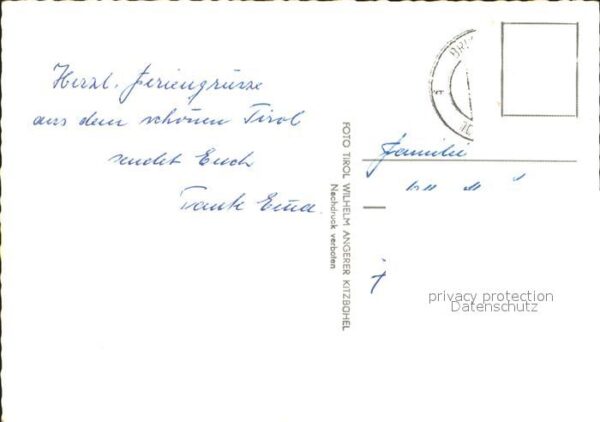 Herzl. Feriengrüsse
aus dem schönen Tirol
sendet Euch
Tante Erna.
FOTO TIROL WILHELM ANGERER KITZBÜHEL
Nachdruck verboten
BRI
Familie
privacy protection
Datenschutz